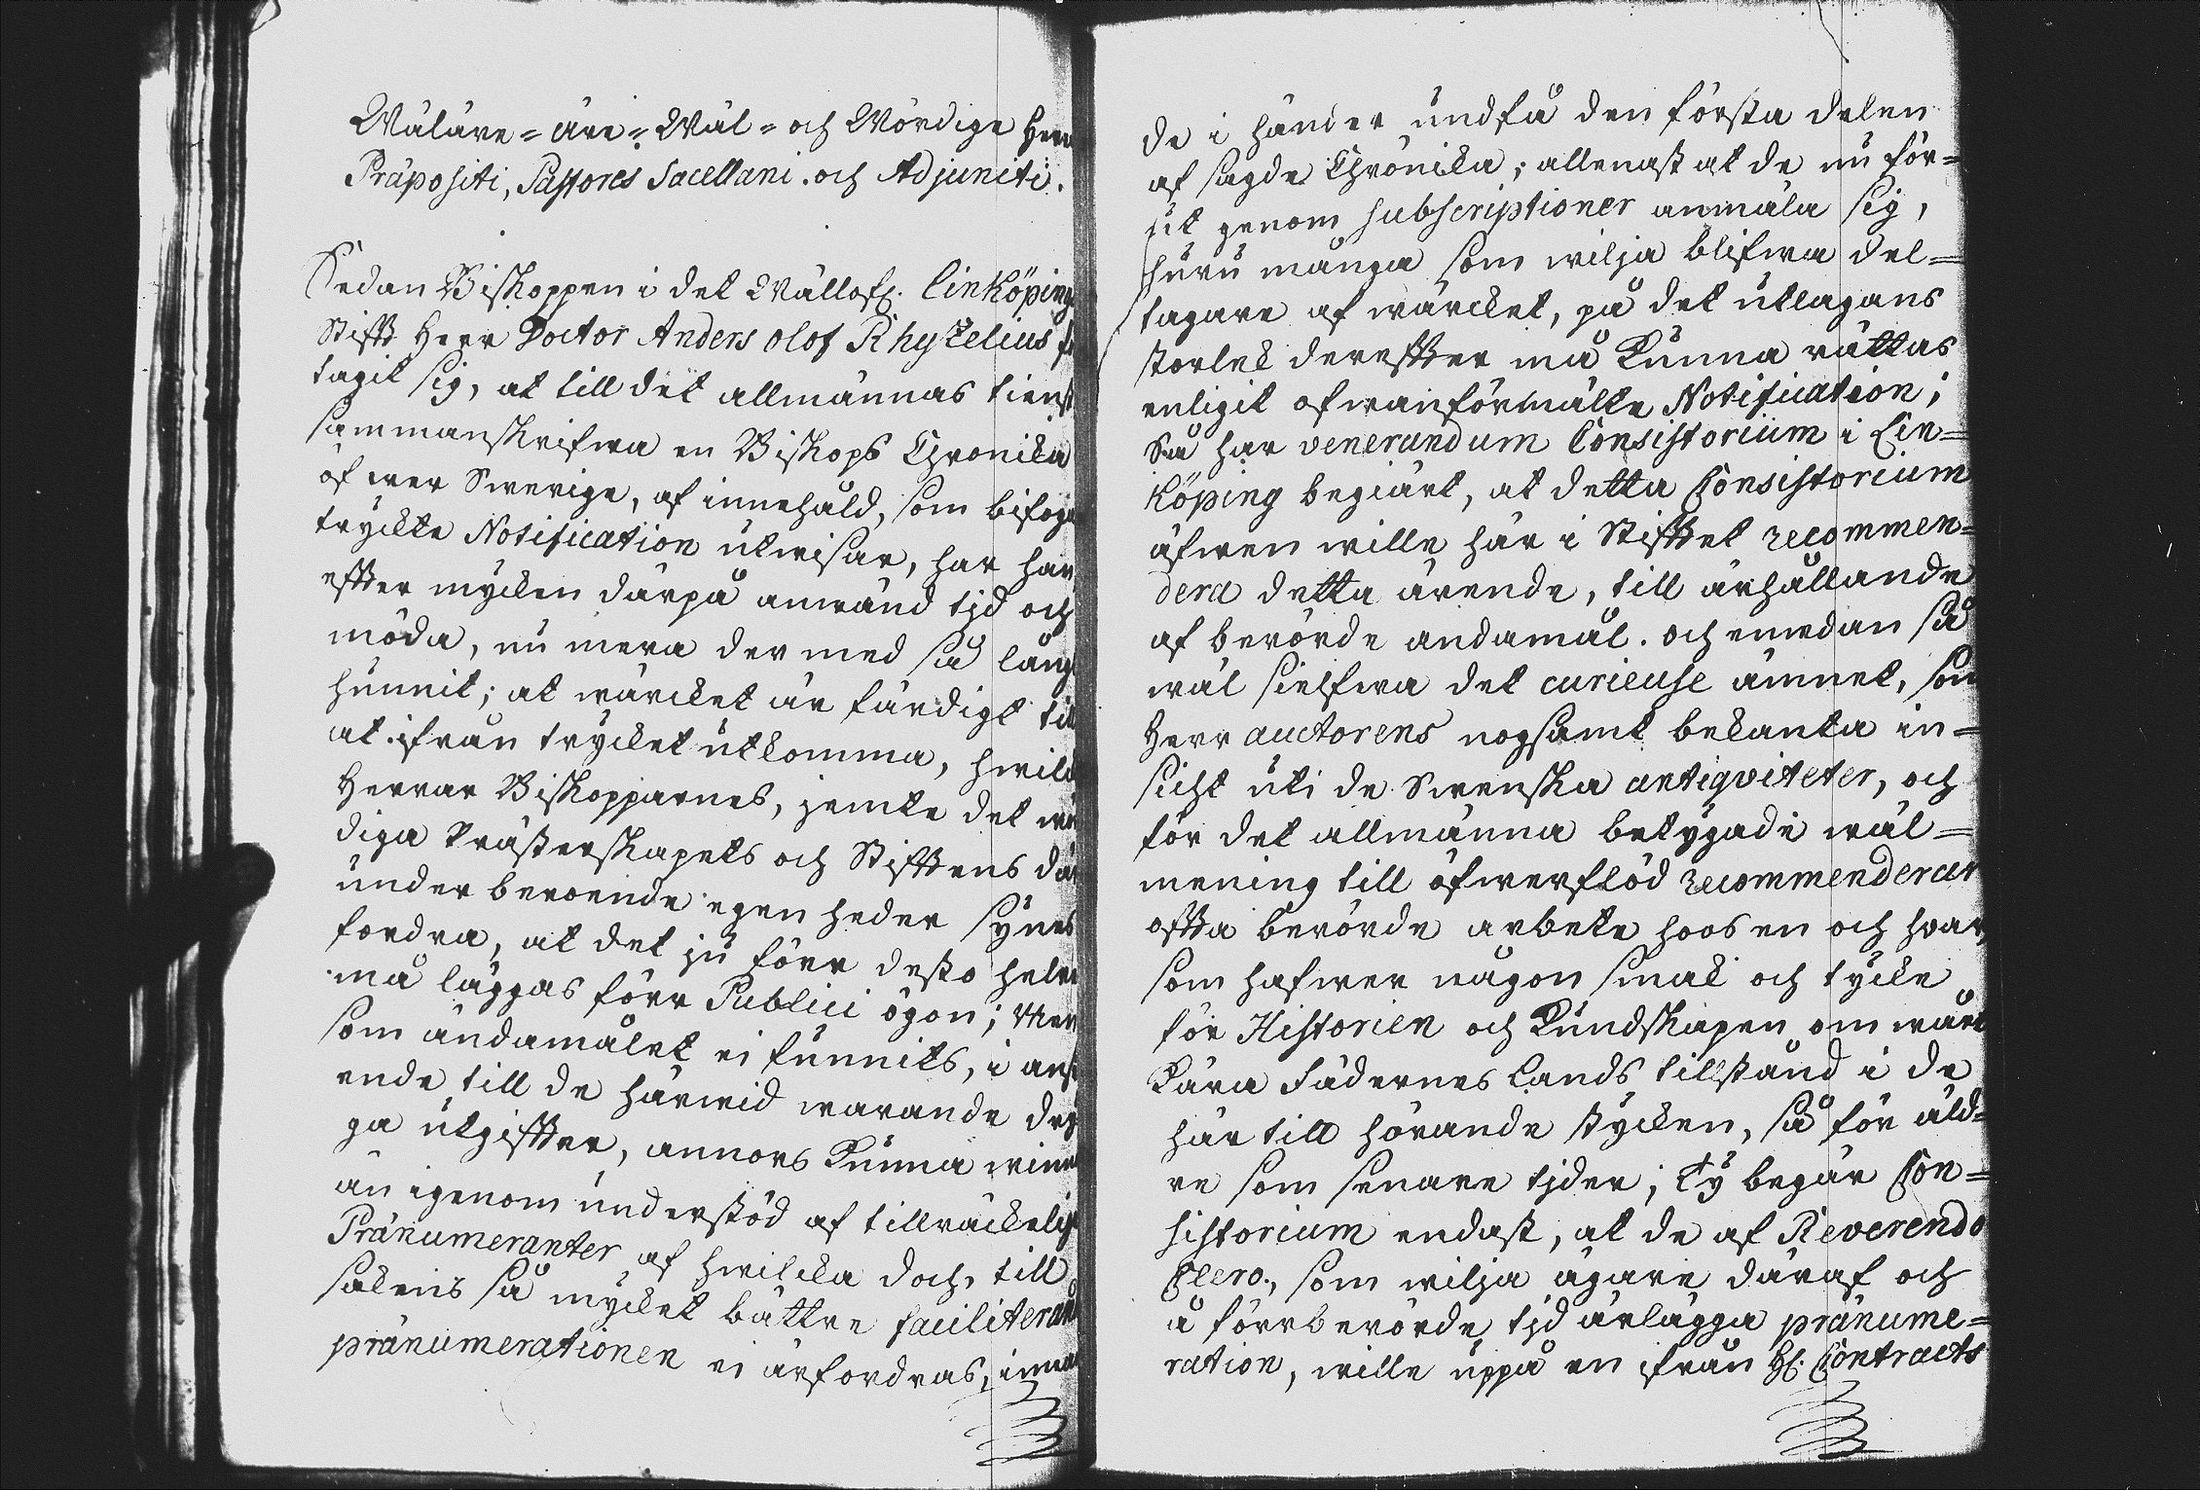 Wäläre- äre- Wäl- och Wördige Herr
Präpositi, Pastores Sacellani. och Adjuncti.
Sedan Biskoppen i det Wällofl. Linköpings
Stifft Herr Doctor Anders Olof Rhyzelius
tagit sig, at till det allmännas tienst
sammanskrifwa en Biskops Chronicka
öfwer Swerige, af innehåld, som bifoga
tryckte Notification utwisar, har han
effter mycken därpå anwänd tjd och
möda, nu mera der med så långt
hunnit; at wärcket är färdigt till
at ifrån trycket utkomma, hwilcket
Herrar Biskopparnes, jemte det wör
diga Prästerskapets och Stifftens där
under beroende egen heder synes
fordra, at det ju förr desto heldre
må läggas förr Publici ögon; Men
som ändamålet ei funnits, i anse
ende till de härwid warande dryg
ga utgiffter, annors kunna winna
än igenom understöd af tillräckelige
Pränumeranter af hwilcka doch, till
sakens så mycket bättre faciliterande
pränumerationen ei ärfordras, innan
de i händer undfå den första delen
af sagde Chrönicka; allenast at de nu för-
ut genom subscriptioner anmäla sig,
huru många som wilja blifwa del-
tagare af wärcket, på det utlagans
storlek dereffter må kunna rättas
enligit ofwanförmälte Notification;
Så har venerandum Consistorium i Lin-
köping begiärt, at detta Consistorium
äfwen wille här i Stifftet recommen-
dera detta ärende, till ärhållande
af berörde ändamål. och emedan så
wäl sielfwa det curieuse ämnet, som
Herr auctorens nogsamt bekanta in-
sicht uti de Swenska antiqviteter, och
för det allmänna betygade wäl-
mening till öfwerflöd recommenderar
offta berörde arbete hoos en och hwar,
som hafwer någon smak och tycke
för Historien och kundskapen om wårt
kära Fädernes Lands tillstånd i de
här till hörande stycken, så för äld-
re som senare tjder; Ty begär Con-
sistorium endast, at de af Reverendo
Clero., som wilja ägare däraf och
å förrberörde tjd ärlägga pränume-
ration, wille uppå en ifrån H. Contracts